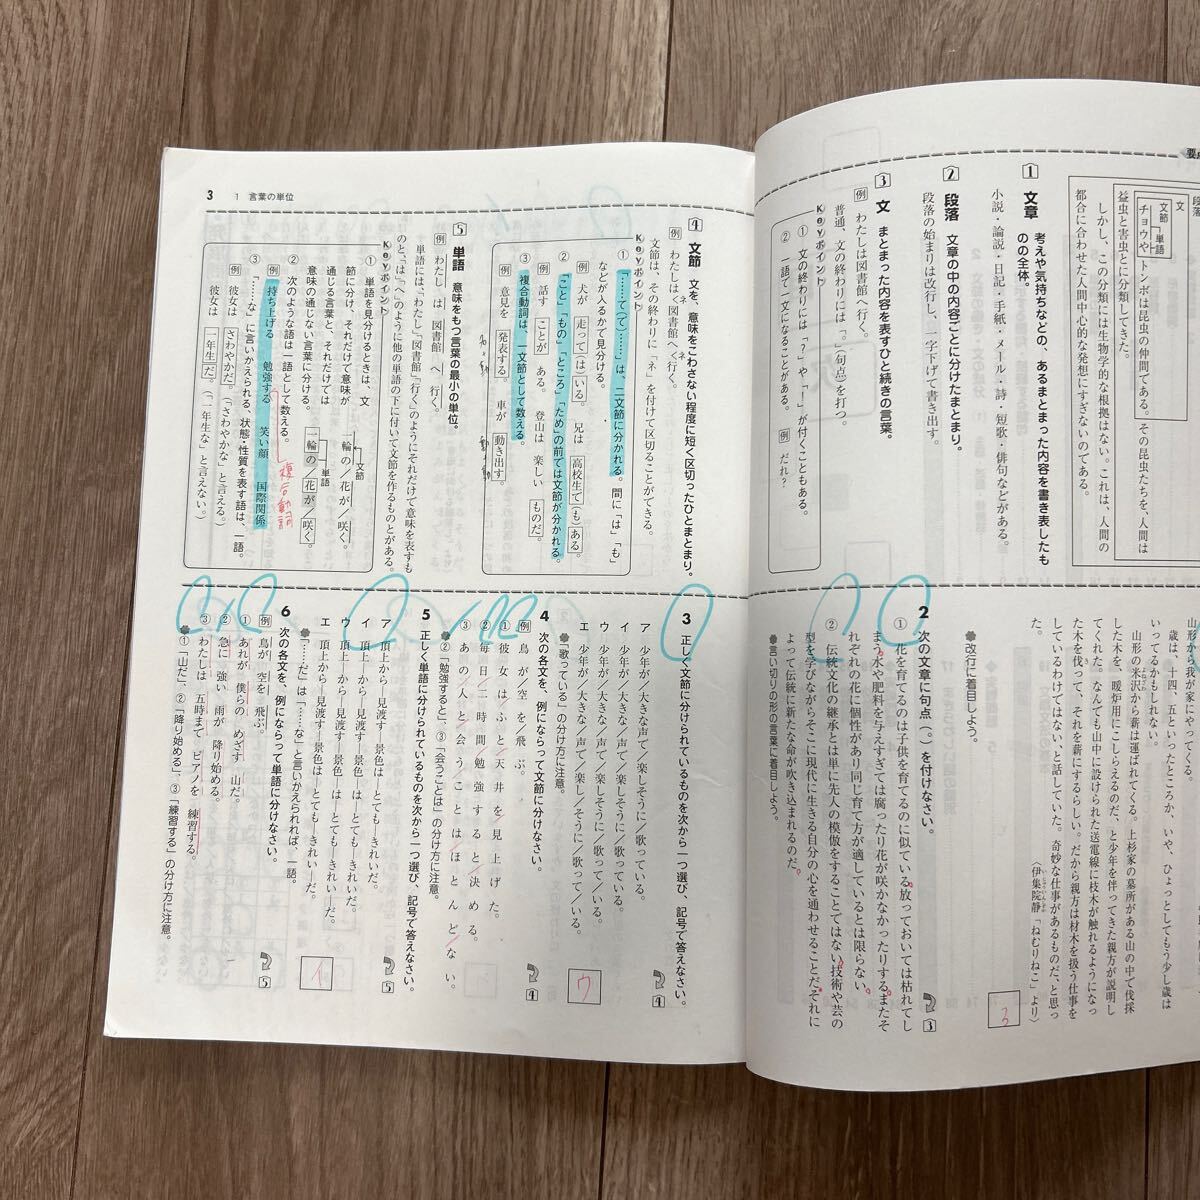 要
段落
文
文節
単語
チョウやトンボは昆虫の仲間である。その昆虫たちを、人間は
益虫と害虫とに分類してきた。
しかし、この分類には生物学的な根拠はない。これは、人間の
都合に合わせた人間中心的な発想にすぎないのである。
1 文章 考えや気持ちなどの、あるまとまった内容を書き表したも
のの全体。
小説・論説・日記・手紙・メール・詩・短歌・俳句などがある。
2 段落 文章の中の内容ごとに分けたまとまり。
段落の始まりは改行し、一字下げて書き出す。
3 文 まとまった内容を表すひと続きの言葉。
例 わたしは図書館へ行く。
普通、文の終わりには「。」(句点)を打つ。
Keyポイント
① 文の終わりには「?」や「!」が付くこともある。
② 一語で一文になることがある。 例 だれ?
山形から我が家にやって
歳は、十四、五といったところか、いや、ひょっとしてもう少し歳は
いってるかもしれない。
山形の米沢から薪は運ばれてくる。上杉家の墓所がある山の中で伐採
した木を、暖炉用にこしらえるのだ、と少年を伴ってきた親方が説明し
てくれた。なんでも山中に設けられた送電線に枝木が触れるようになっ
た木を伐って、それを薪にするらしい。だから親方は材木を扱う仕事を
しているわけではない、と話していた。奇妙な仕事があるものだ、と思っ
た。
〈伊集院静「ねむりねこ」より〉
●改行に着目しよう。
3
2 次の文章に句点(。)を付けなさい。
3
① 花を育てるのは子供を育てるのに似ている。放っておいては枯れてし
まう。水や肥料を与えすぎては腐ったり花が咲かなかったりする。またそ
れぞれの花に個性があり同じ育て方が適しているとは限らない。
② 伝統文化の継承とは単に先人の模倣をすることではない。技術や芸の
型を学びながらそこに現代に生きる自分の心を通わせることだ。それに
よって伝統に新たな命が吹き込まれるのだ。
●言い切りの形の言葉に着目しよう。
3
1 言葉の単位
4 文節 文を、意味をこわさない程度に短く区切ったひとまとまり。
例 わたしは〈ネ〉図書館へ〈ネ〉行く。
文節は、その終わりに「ネ」を付けて区切ることができる。
Keyポイント
① 「……て(で)……」は、二文節に分かれる。間に「は」「も」
などが入るかで見分ける。
例 犬が 走って(は)いる。 兄は 高校生で(も)ある。
② 「こと」「もの」「ところ」「ため」の前では文節が分かれる。
例 話す ことが ある。 登山は 楽しい ものだ。
③ 複合動詞は、一文節として数える。
例 意見を 発表する。 車が 動き出す。
5 単語 意味をもつ言葉の最小の単位。
例 わたし は 図書館 へ 行く。
単語には、「わたし」「図書館」「行く」のようにそれだけで意味を表すも
のと、「は」「へ」のように他の単語の下に付いて文節を作るものとがある。
Keyポイント
① 単語を見分けるときは、文
節に分け、それだけで意味が
通じる言葉と、それだけでは
意味の通じない言葉に分ける。
一輪の/花が/咲く。
文節
一輪の/花が/咲く。
単語
② 次のような語は一語として数える。
複合動詞
例 持ち上げる 勉強する 笑い顔 国際関係
③ 「……な」に言いかえられる、状態・性質を表す語は、一語。
例 彼女は さわやかだ。(「さわやかな」と言える。)
例 彼女は 一年生だ。(「一年生な」と言えない。)
3 正しく文節に分けられているものを次から一つ選び、記号で答えなさい。
4
ア 少年が/大きな声で/楽しそうに/歌っている。
イ 少年が/大きな/声で/楽しそうに/歌っている。
ウ 少年が/大きな/声で/楽しそうに/歌って/いる。
エ 少年が/大きな/声で/楽し/そうに/歌って/いる。
ウ
●「歌っている」の分け方に注意。
4 次の各文を、例にならって文節に分けなさい。
4
例 鳥が/空を/飛ぶ。
① 彼女は/ふと/天井を/見上げた。
② 毎日/二時間/勉強すると/決める。
③ あの/人と/会う/ことは/ほとんど/ない。
●②「勉強すると」、③「会うことは」の分け方に注意。
5 正しく単語に分けられているものを次から一つ選び、記号で答えなさい。
5
ア 頂上から―見渡す―景色は―とても―きれいだ。
イ 頂上―から―見渡す―景色―は―とても―きれいだ。
ウ 頂上―から―見渡す―景色―は―とても―きれい―だ。
エ 頂上から―見渡す―景色は―とても―きれい―だ。
イ
●「……だ」は「……な」と言いかえられれば、一語。
6 次の各文を、例にならって単語に分けなさい。
5
例 鳥が 空を 飛ぶ。
① あれが 僕らの めざす 山だ。
② 急に 強い 雨が 降り始める。
③ わたしは 五時まで ピアノを 練習する。
●①「山だ」、②「降り始める」、③「練習する」の分け方に注意。